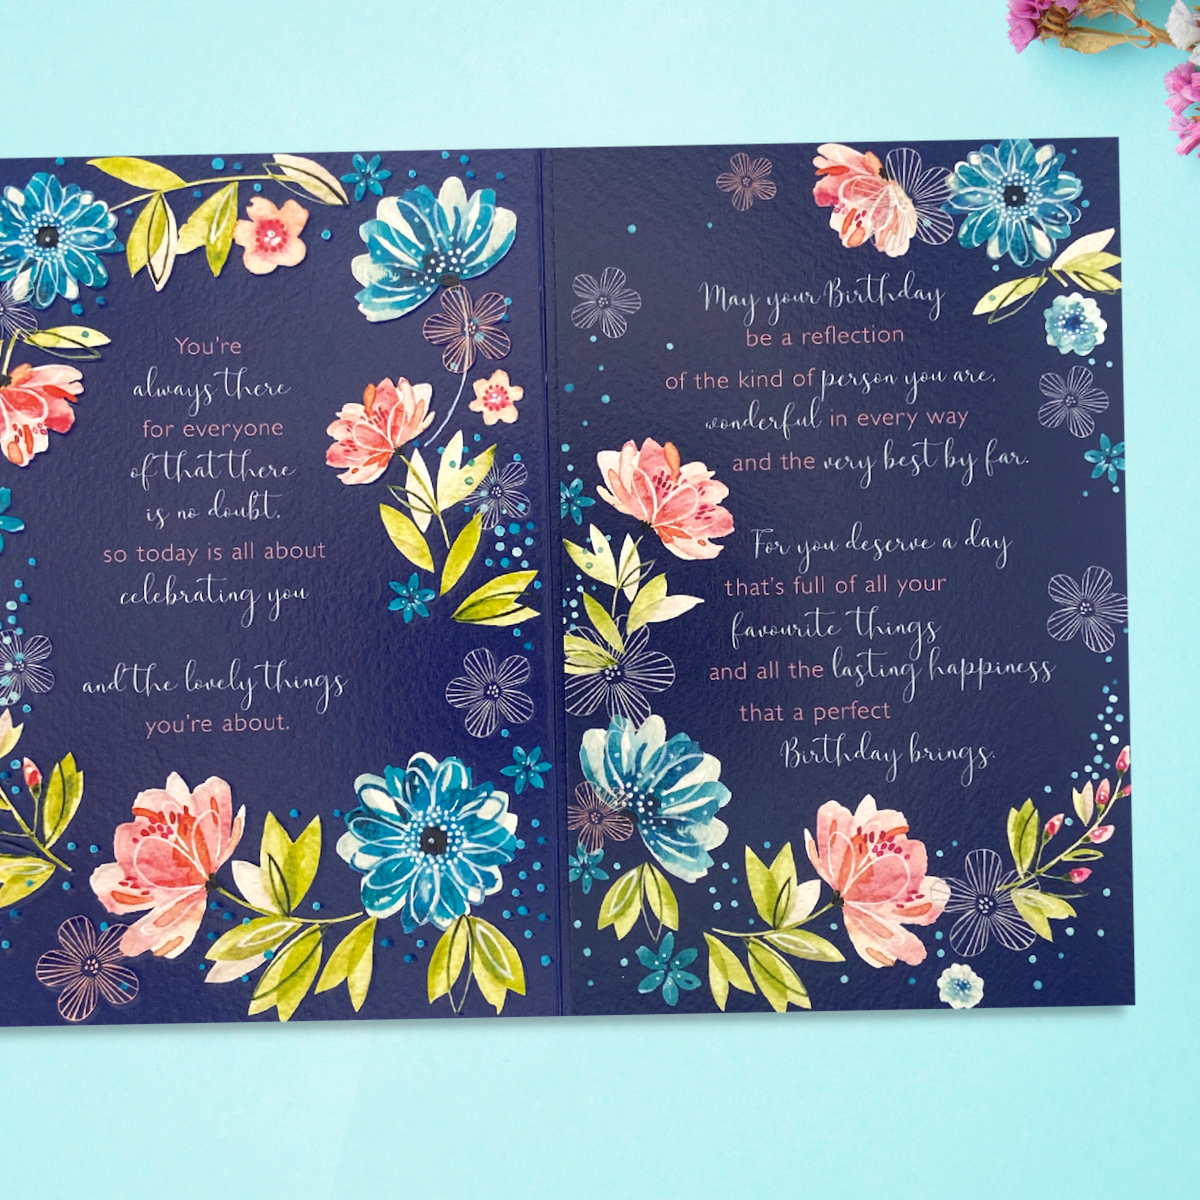 You're
always there
for everyone
of that there
is no doubt,
so today is all about
celebrating you
and the lovely things
you're about.
May your Birthday
be a reflection
of the kind of person you are,
wonderful in every way
and the very best by far.
For you deserve a day
that's full of all your
favourite things
and all the lasting happiness
that a perfect
Birthday brings.